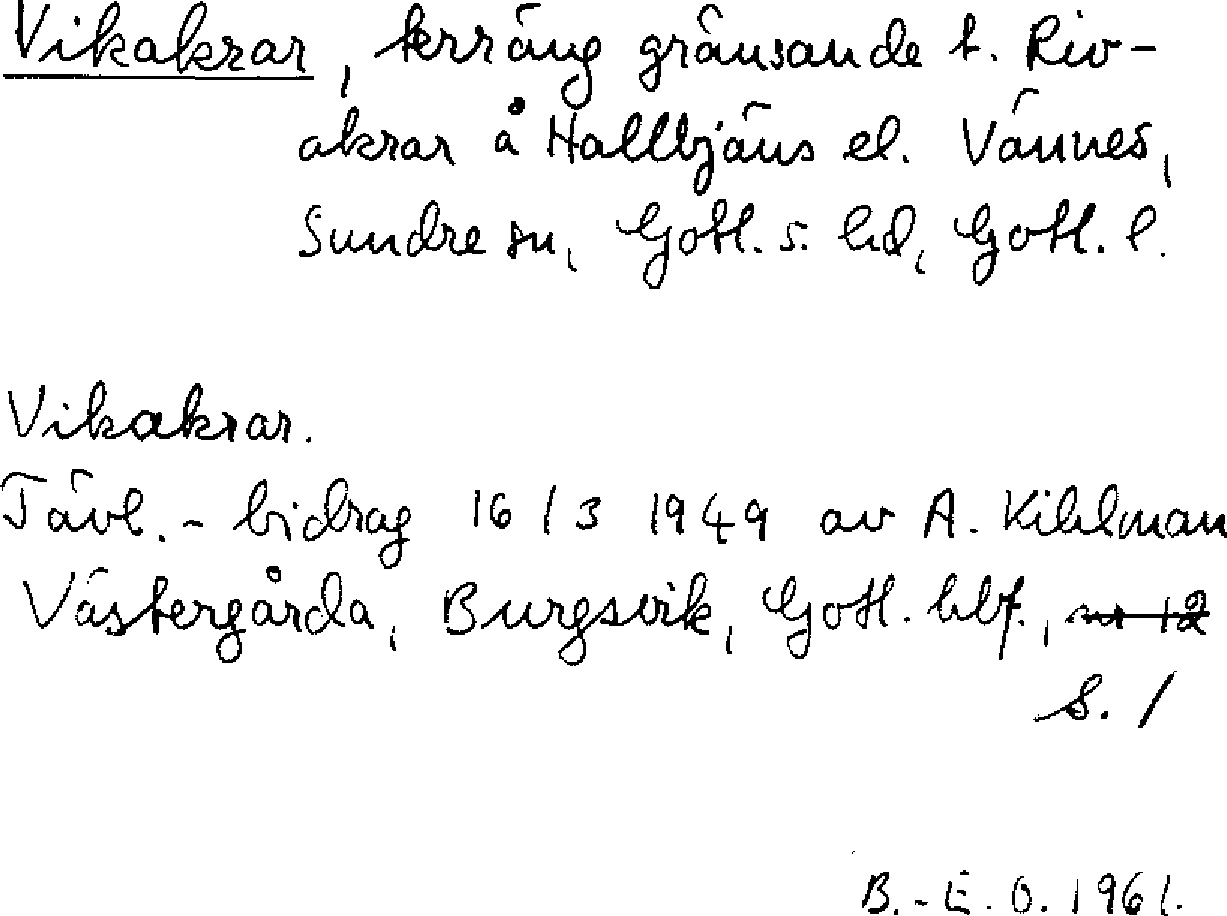 Vikakrar, terräng gränsande t. Riv-
akrar å Hallbjäns el. Vännes,
Sundre sn, Gotl. s. hd, Gotl. l.
Vikakrar.
Tävl.-bidrag 16/3 1949 av A. Kihlman
Västergårda, Burgsvik, Gotl. hbf., nr 12
S. 1
B.-E. O. 1961.